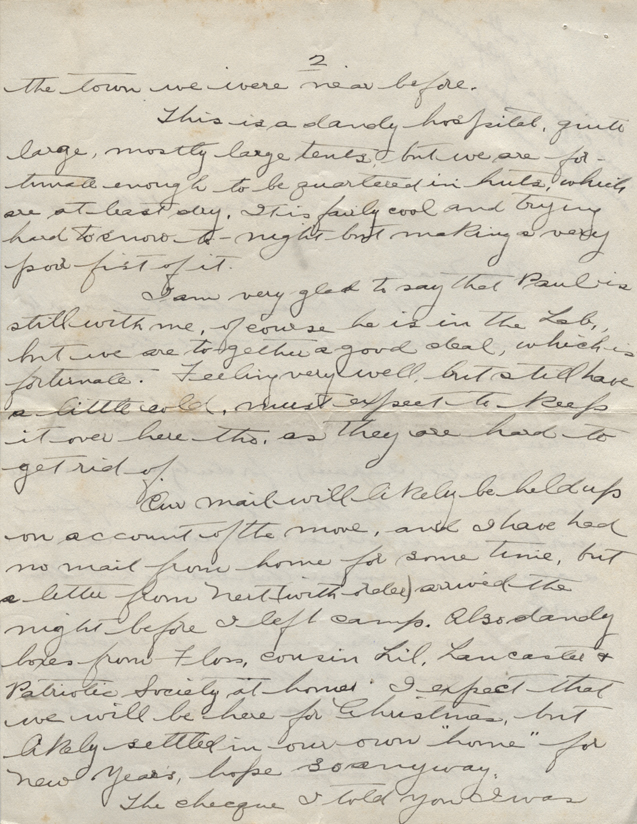 2
the town we were near before.
This is a dandy hospital, quite
large, mostly large tents, but we are for-
tunate enough to be quartered in huts, which
are at least dry. It is fairly cool and trying
hard to snow to-night but making a very
poor fist of it.
I am very glad to say that Paul is
still with me, of course he is in the Lab,
but we are together a good deal, which is
fortunate. Feeling very well, but still have
a little cold, must expect to keep
it over here tho. as they are hard to
get rid of.
Our mail will likely be held up
on account of the move, and I have had
no mail from home for some time, but
a letter from Nert (with order) arrived the
night before I left camp. Also dandy
boxes from Floss, cousin Lil, Lancaster &
Patriotic Society at home. I expect that
we will be here for Christmas, but
likely settled in our own "home" for
New Years, hope so anyway.
The checque I told you I was